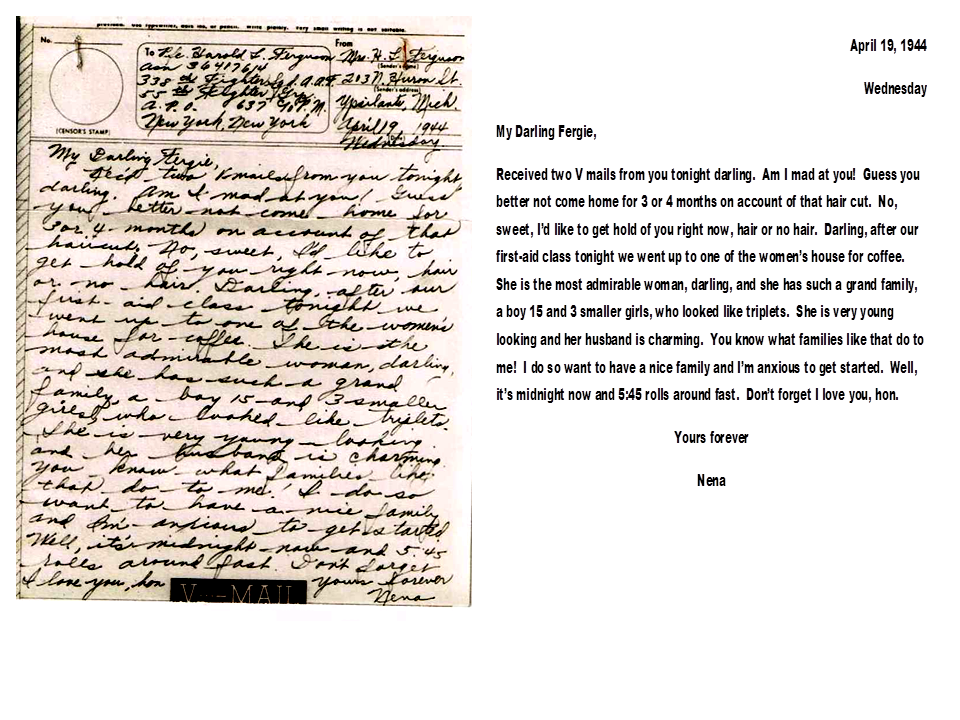 provided. Use typewriter, dark ink, or pencil. Write plainly. Very small writing is not suitable.
No.
(CENSOR'S STAMP)
To Pfc. Harold L. Ferguson
asn 36417614
338 th Fighter Sqd. A.A.F.
55 th Fighter Grp.
A.P.O. 637 % P.M.
New York, New York
From
Mrs. H. L. Ferguson
(Sender's name)
213 N. Huron St.
(Sender's address)
Ypsilanti, Mich
April 19, 1944
Wednesday
My Darling Fergie,
Rec'd two Vmails from you tonight
darling. Am I mad at you! Guess
you better not come home for
3 or 4 months on account of that
haircut. No, sweet, I'd like to
get hold of you right now, hair
or no hair. Darling, after our
first-aid class tonight we
went up to one of the women's
house for coffee. She is the
most admirable woman, darling,
and she has such a grand
family, a boy 15 and 3 smaller
girls, who looked like triplets.
She is very young looking
and her husband is charming.
You know what families like
that do to me! I do so
want to have a nice family
and I'm anxious to get started
Well, it's midnight now and 5:45
rolls around fast. Don't forget
I love you, hon
yours forever
Nena
V···—MAIL
April 19, 1944
Wednesday
My Darling Fergie,
Received two V mails from you tonight darling. Am I mad at you! Guess you
better not come home for 3 or 4 months on account of that hair cut. No,
sweet, I'd like to get hold of you right now, hair or no hair. Darling, after our
first-aid class tonight we went up to one of the women's house for coffee.
She is the most admirable woman, darling, and she has such a grand family,
a boy 15 and 3 smaller girls, who looked like triplets. She is very young
looking and her husband is charming. You know what families like that do to
me! I do so want to have a nice family and I'm anxious to get started. Well,
it's midnight now and 5:45 rolls around fast. Don't forget I love you, hon.
Yours forever
Nena